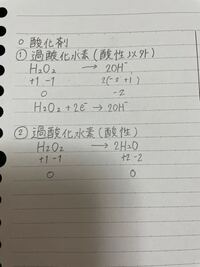 ○ 酸化剤
① 過酸化水素(酸性以外)
H₂O₂ → 2OH⁻
+1 -1 2(-2 +1)
0 -2
H₂O₂ + 2e⁻ → 2OH⁻
② 過酸化水素(酸性)
H₂O₂ → 2H₂O
+1 -1 +2 -2
0 0